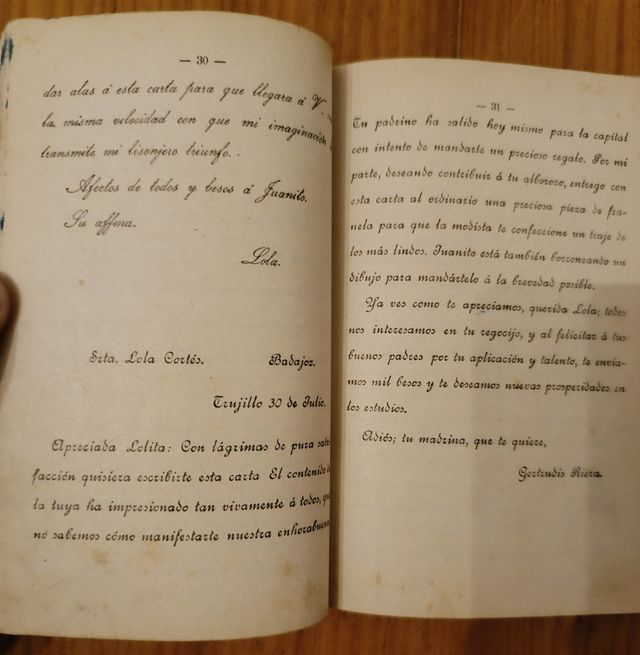 — 30 —
dar alas á esta carta para que llegara á V.
la misma velocidad con que mi imaginación
transmite mi lisonjero triunfo..
Afectos de todos y besos á Juanito.
Su affma.
Lola.
Srta. Lola Cortés. Badajoz.
Trujillo 30 de Julio.
Apreciada Lolita: Con lágrimas de pura satis
facción quisiera escribirte esta carta El contenido
la tuya ha impresionado tan vivamente á todos, que
no sabemos cómo manifestarte nuestra enhorabuena
— 31 —
Tu padrino ha salido hoy mismo para la capital
con intento de mandarte un precioso regalo. Por mi
parte, deseando contribuir á tu alborozo, entrego con
esta carta al ordinario una preciosa pieza de fra-
nela para que la modista te confeccione un traje de
los más lindos. Juanito está también borroneando un
dibujo para mandártelo á la brevedad posible.
Ya ves como te apreciamos, querida Lola; todos
nos interesamos en tu regocijo, y al felicitar á tus
buenos padres por tu aplicación y talento, te envia-
mos mil besos y te deseamos nuevas prosperidades en
los estudios.
Adiós; tu madrina, que te quiere,
Gertrudis Riera.